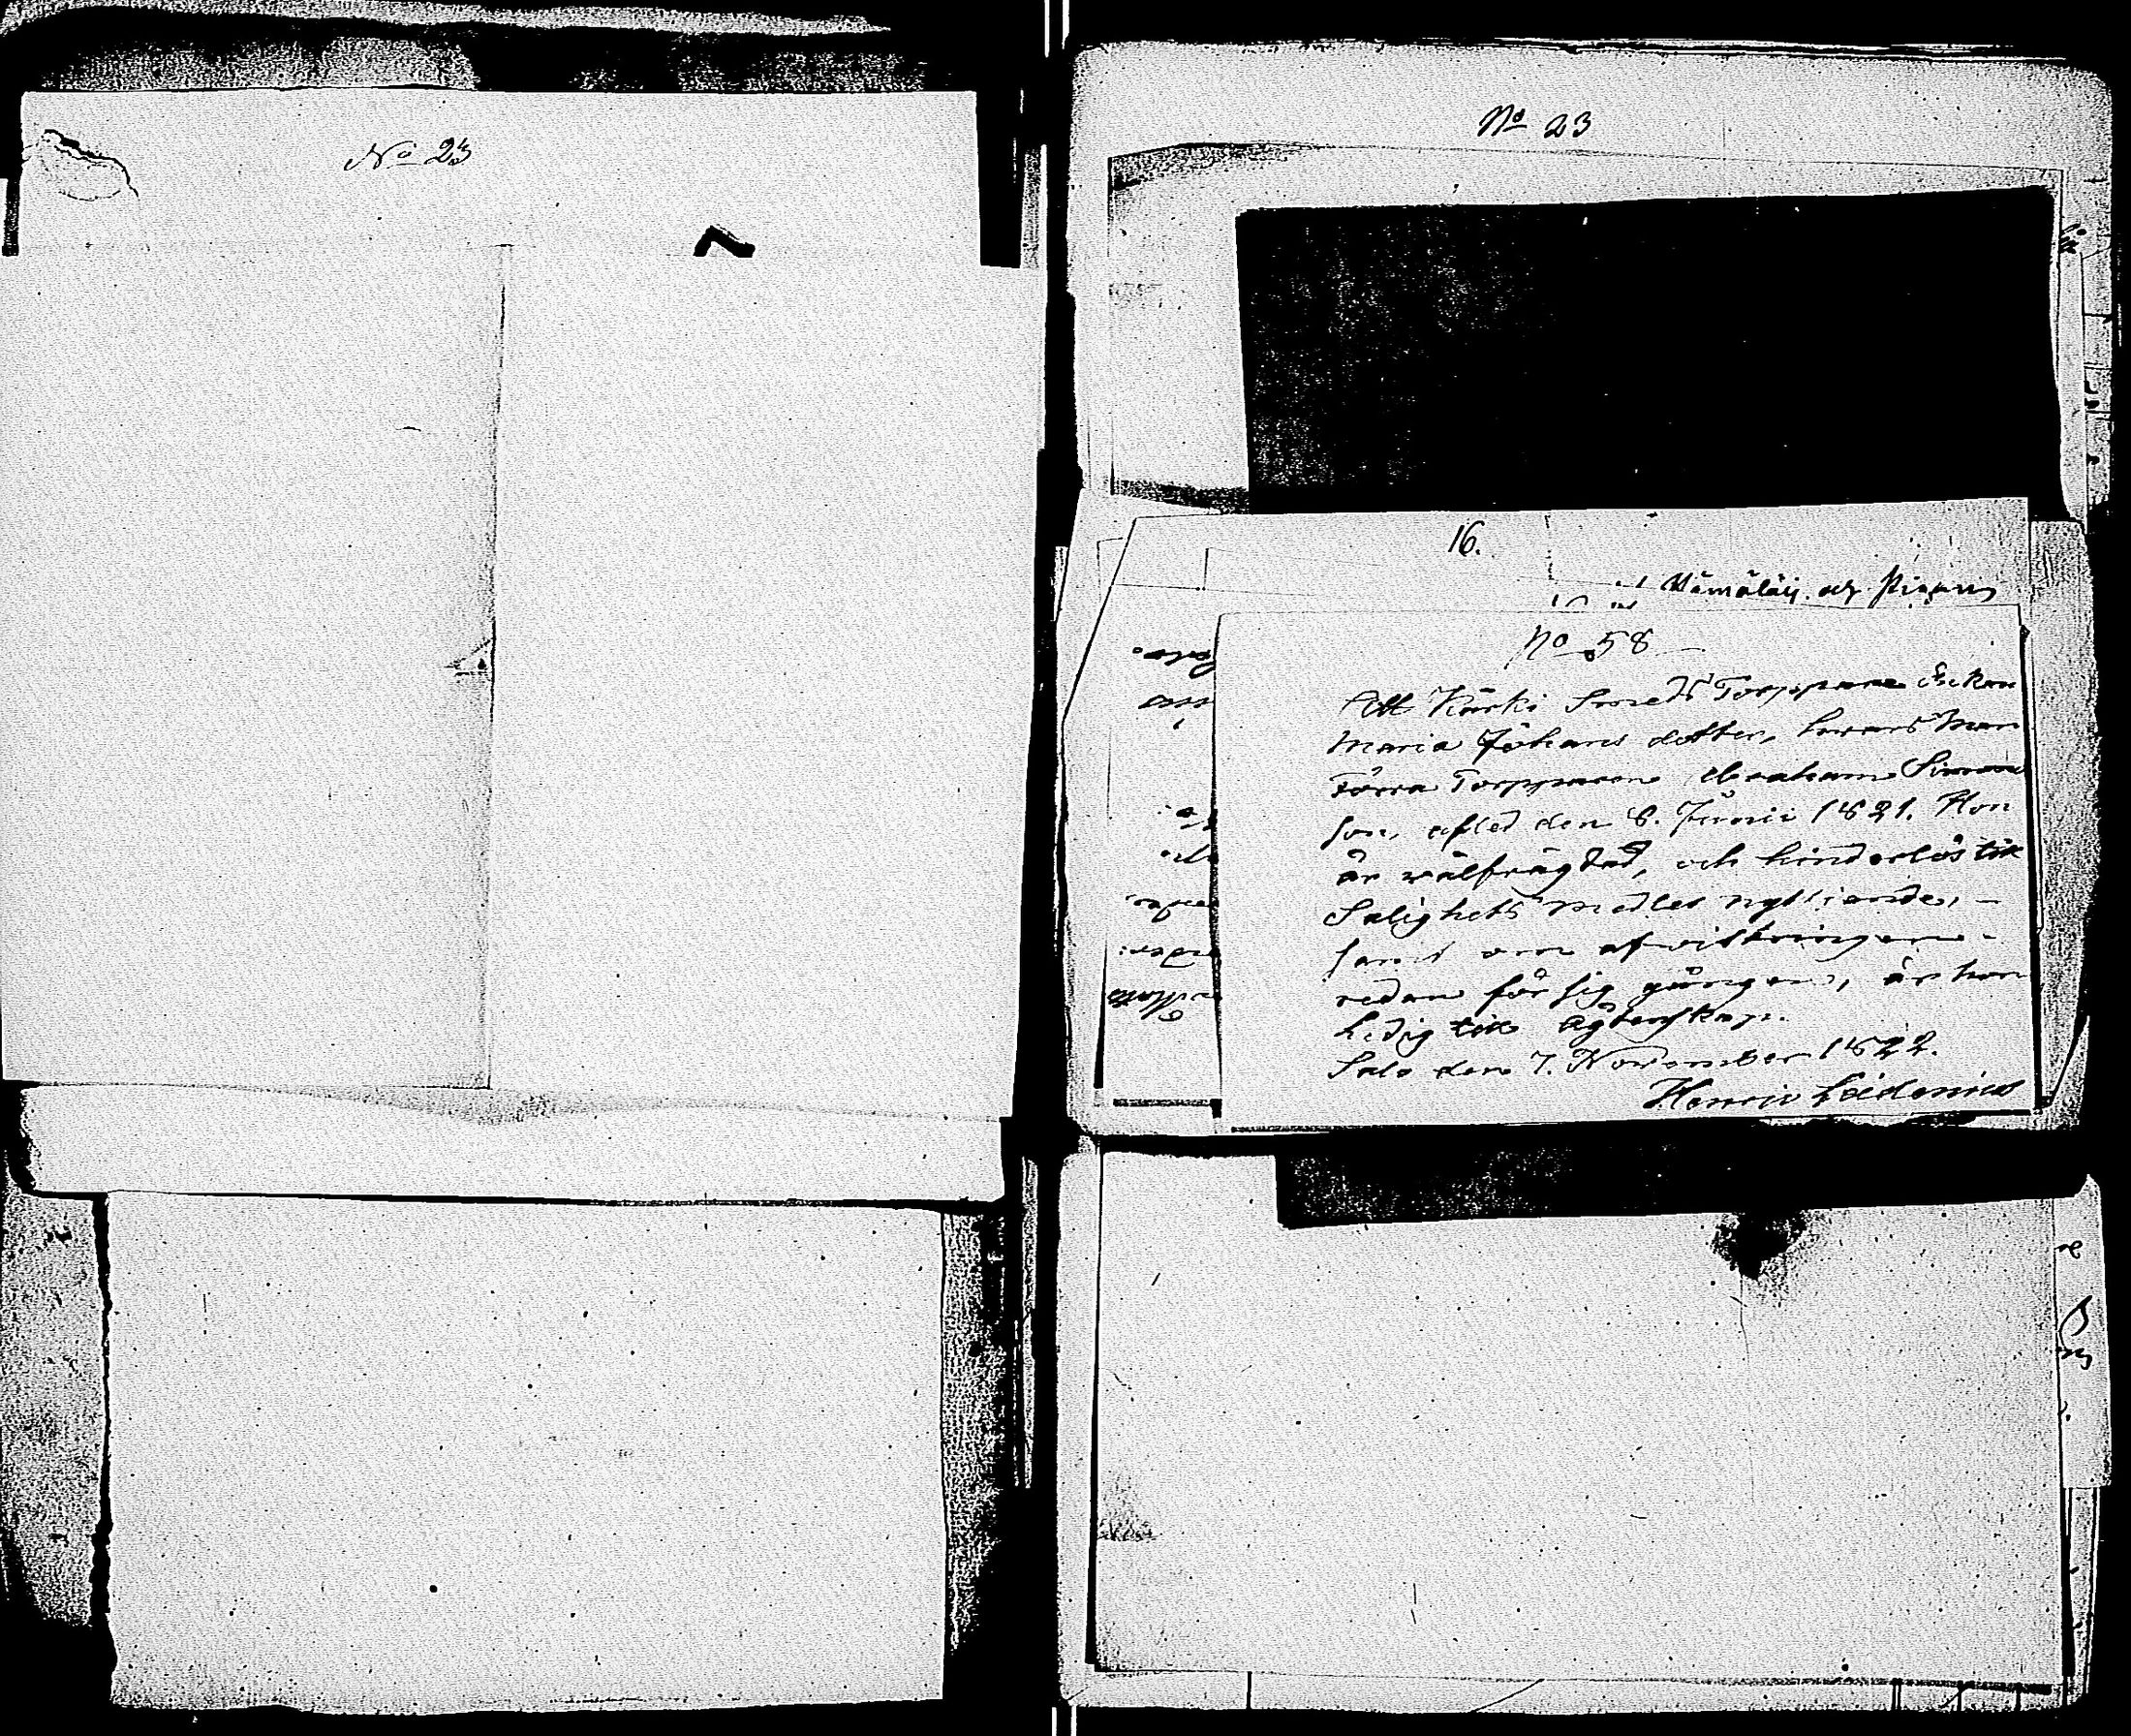 No 23
No 23
16.
No 58
Att Kärki Smeds Torppare Enkan
Maria Johans dotter, hwars Man
Förra Torpparen Abraham Simons
son, afled den 8. Junii 1821. Hon
är wälfrägdad, och hinderlös till
Salighets medlens nyttjande, -
samt om afwittringen -
redan för sig gången, är hon
Ledig till Ägtenskap.
Salo den 7. November 1822.
Henric Leidenius